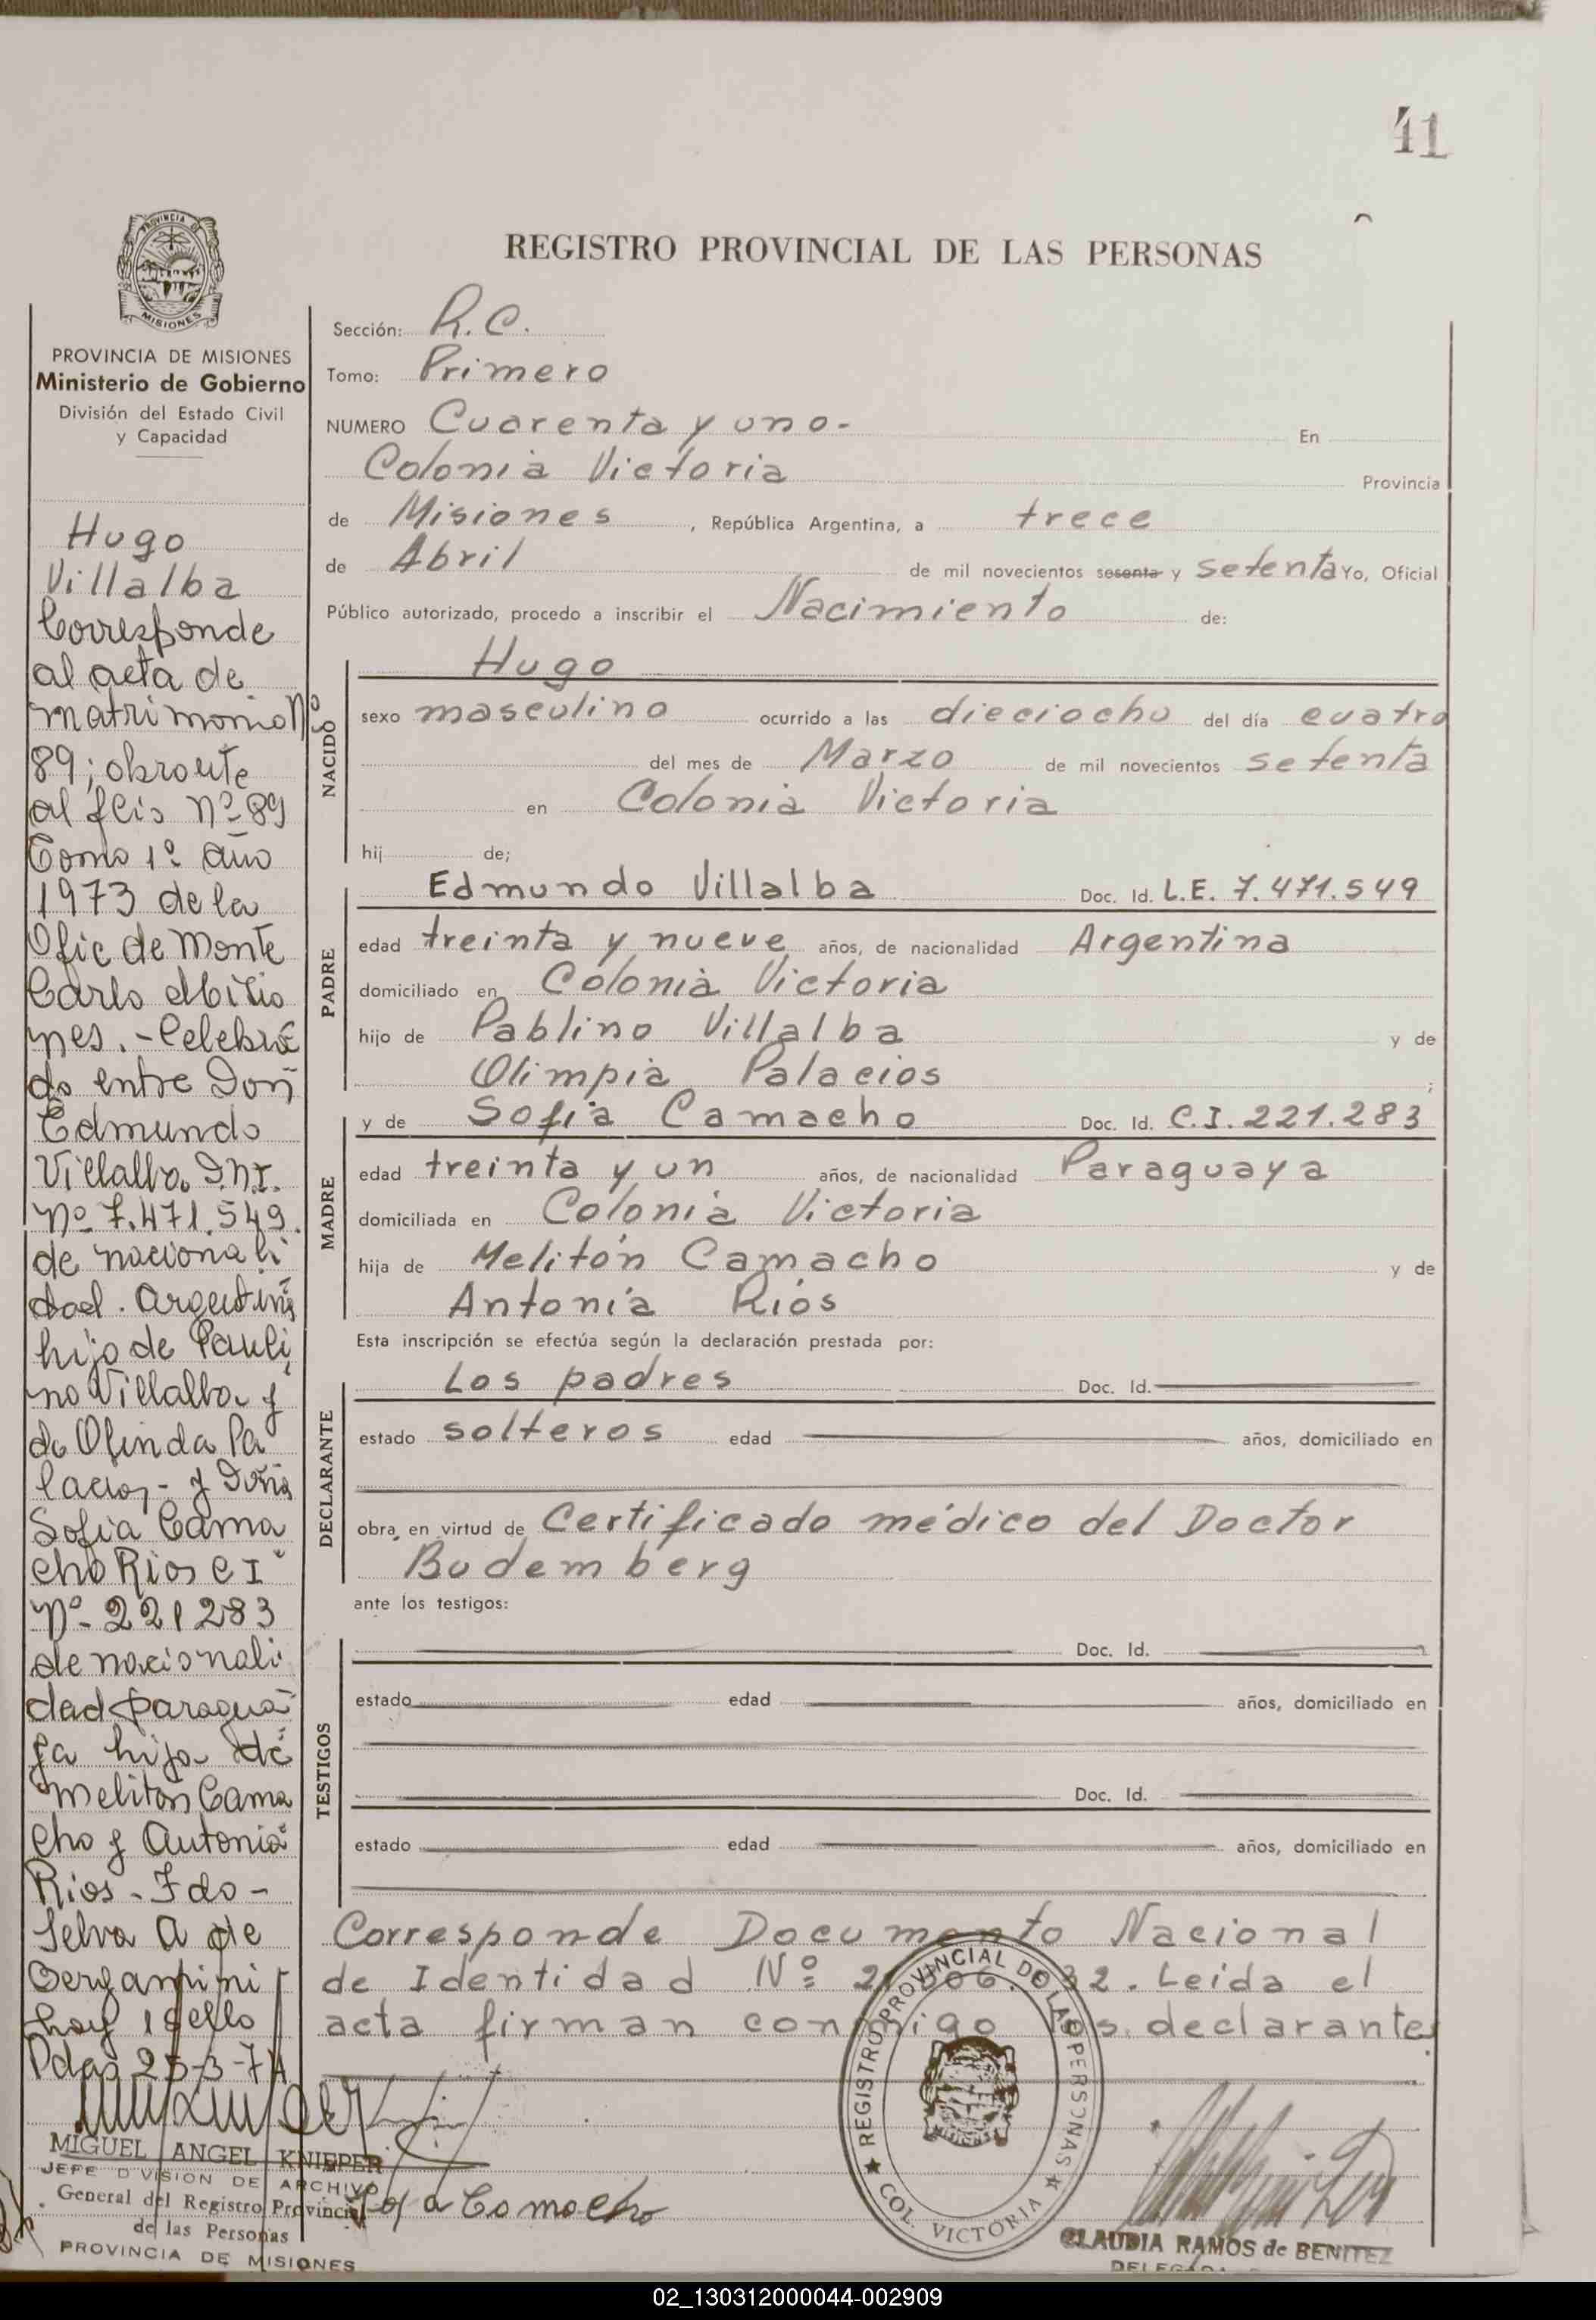 41
PROVINCIA DE MISIONES
REGISTRO PROVINCIAL DE LAS PERSONAS
PROVINCIA DE MISIONES
Ministerio de Gobierno
División del Estado Civil
y Capacidad
Hugo
Villalba
Corresponde
al acta de
matrimonio Nº
89; obrante
al folio Nº 89
Tomo 1º año
1973 de la
Ofic de Monte
Carlo Misio
nes. - Celebra
do entre Don
Edmundo
Villalba D.N.I.
Nº 7.471.549.
de nacionali
dad. Argentina
hijo de Pauli
no Villalba y
de Olinda Pa
lacios - y Doña
Sofia Cama
cho Rios C I
Nº 221283
de nacionali
dad paragua
ya hija de
Meliton Cama
cho y Antonia
Rios - Fdo -
Selva A de
Bergamini
hay 1 sello
Pdas 25-3-74
MIGUEL ANGEL KNIEPER
JEFE DIVISION DE ARCHIVO
General del Registro Provincial
de las Personas
PROVINCIA DE MISIONES
Sección: R.C.
Tomo: Primero
NUMERO Cuarenta y uno- En
Colonia Victoria Provincia
de Misiones, República Argentina, a trece
de Abril de mil novecientos sesenta y setenta Yo, Oficial
Público autorizado, procedo a inscribir el Nacimiento de:
NACIDO
Hugo
sexo masculino ocurrido a las dieciocho del día cuatro
del mes de Marzo de mil novecientos setenta
en Colonia Victoria
hij de;
PADRE
Edmundo Villalba Doc. Id. L.E. 7.471.549
edad treinta y nueve años, de nacionalidad Argentina
domiciliado en Colonia Victoria
hijo de Pablino Villalba y de
Olimpia Palacios ;
MADRE
y de Sofía Camacho Doc. Id. C.I. 221.283
edad treinta y un años, de nacionalidad Paraguaya
domiciliada en Colonia Victoria
hija de Melitón Camacho y de
Antonia Ríos
Esta inscripción se efectúa según la declaración prestada por:
DECLARANTE
Los padres Doc. Id.
estado solteros edad años, domiciliado en
obra en virtud de Certificado médico del Doctor
Budemberg
ante los testigos:
TESTIGOS
Doc. Id.
estado edad años, domiciliado en
Doc. Id.
estado edad años, domiciliado en
Corresponde Documento Nacional
de Identidad Nº Leida el
acta firman conmigo los declarantes.
REGISTRO PROVINCIAL DE LAS PERSONAS
COL. VICTORIA
Camacho
CLAUDIA RAMOS de BENITEZ
DELEGADA
02_130312000044-002909